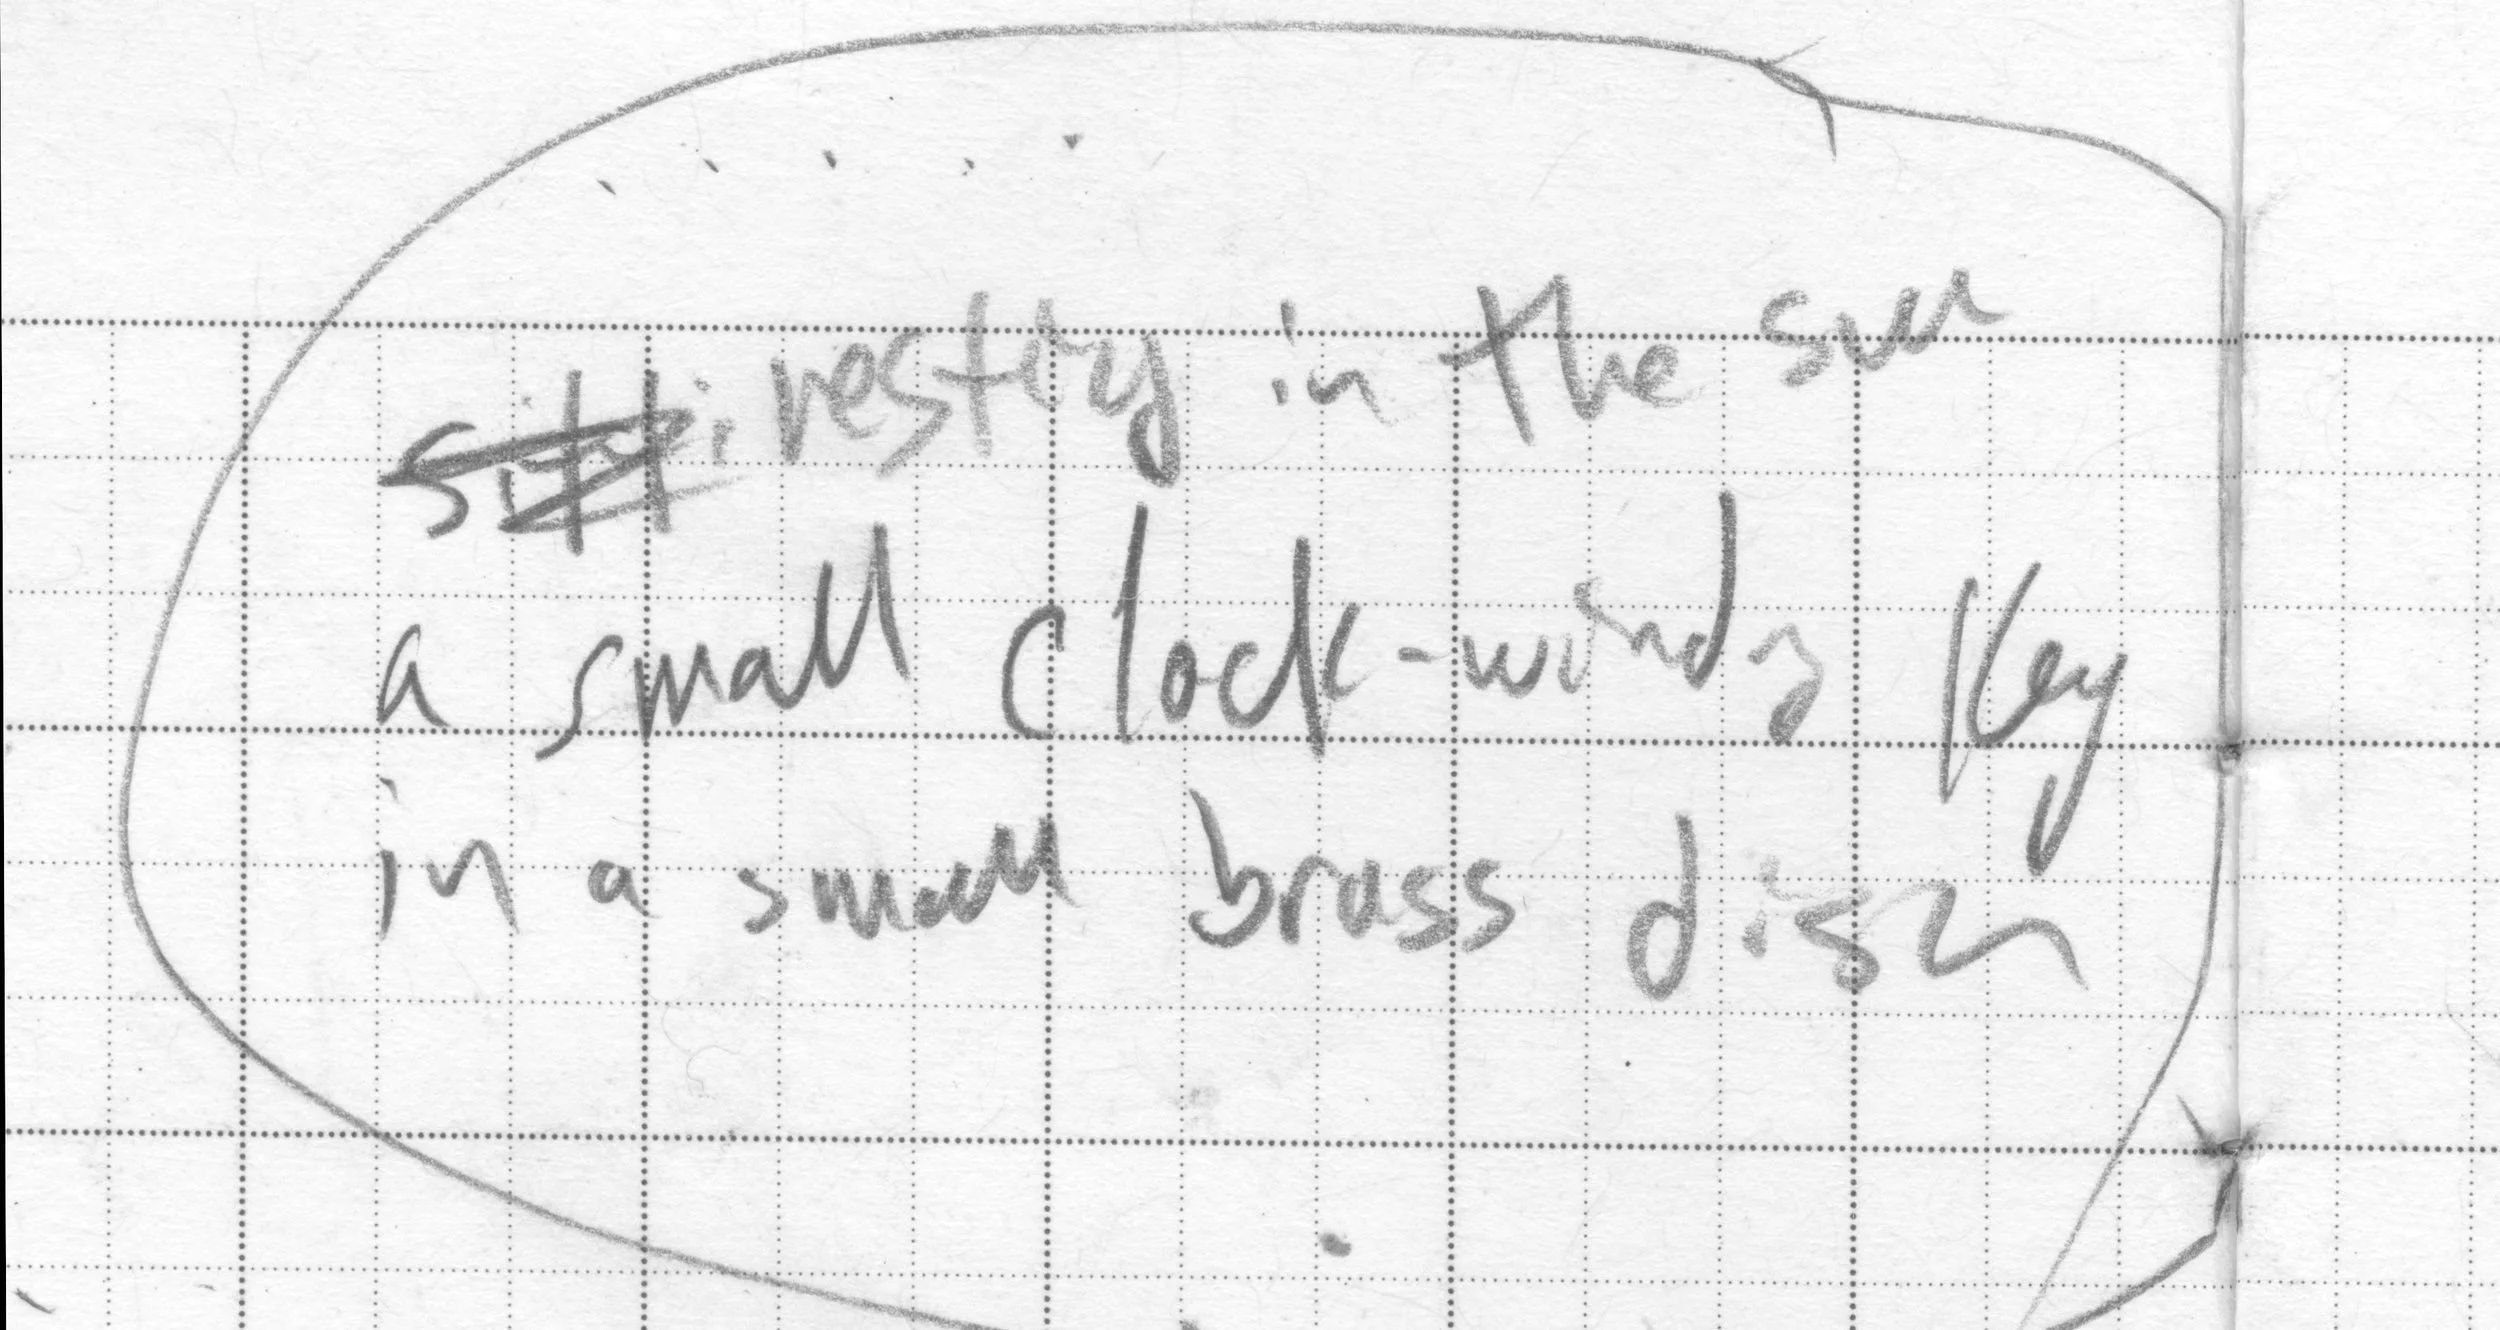 resting in the sun
a small clock-winding key
in a small brass dish